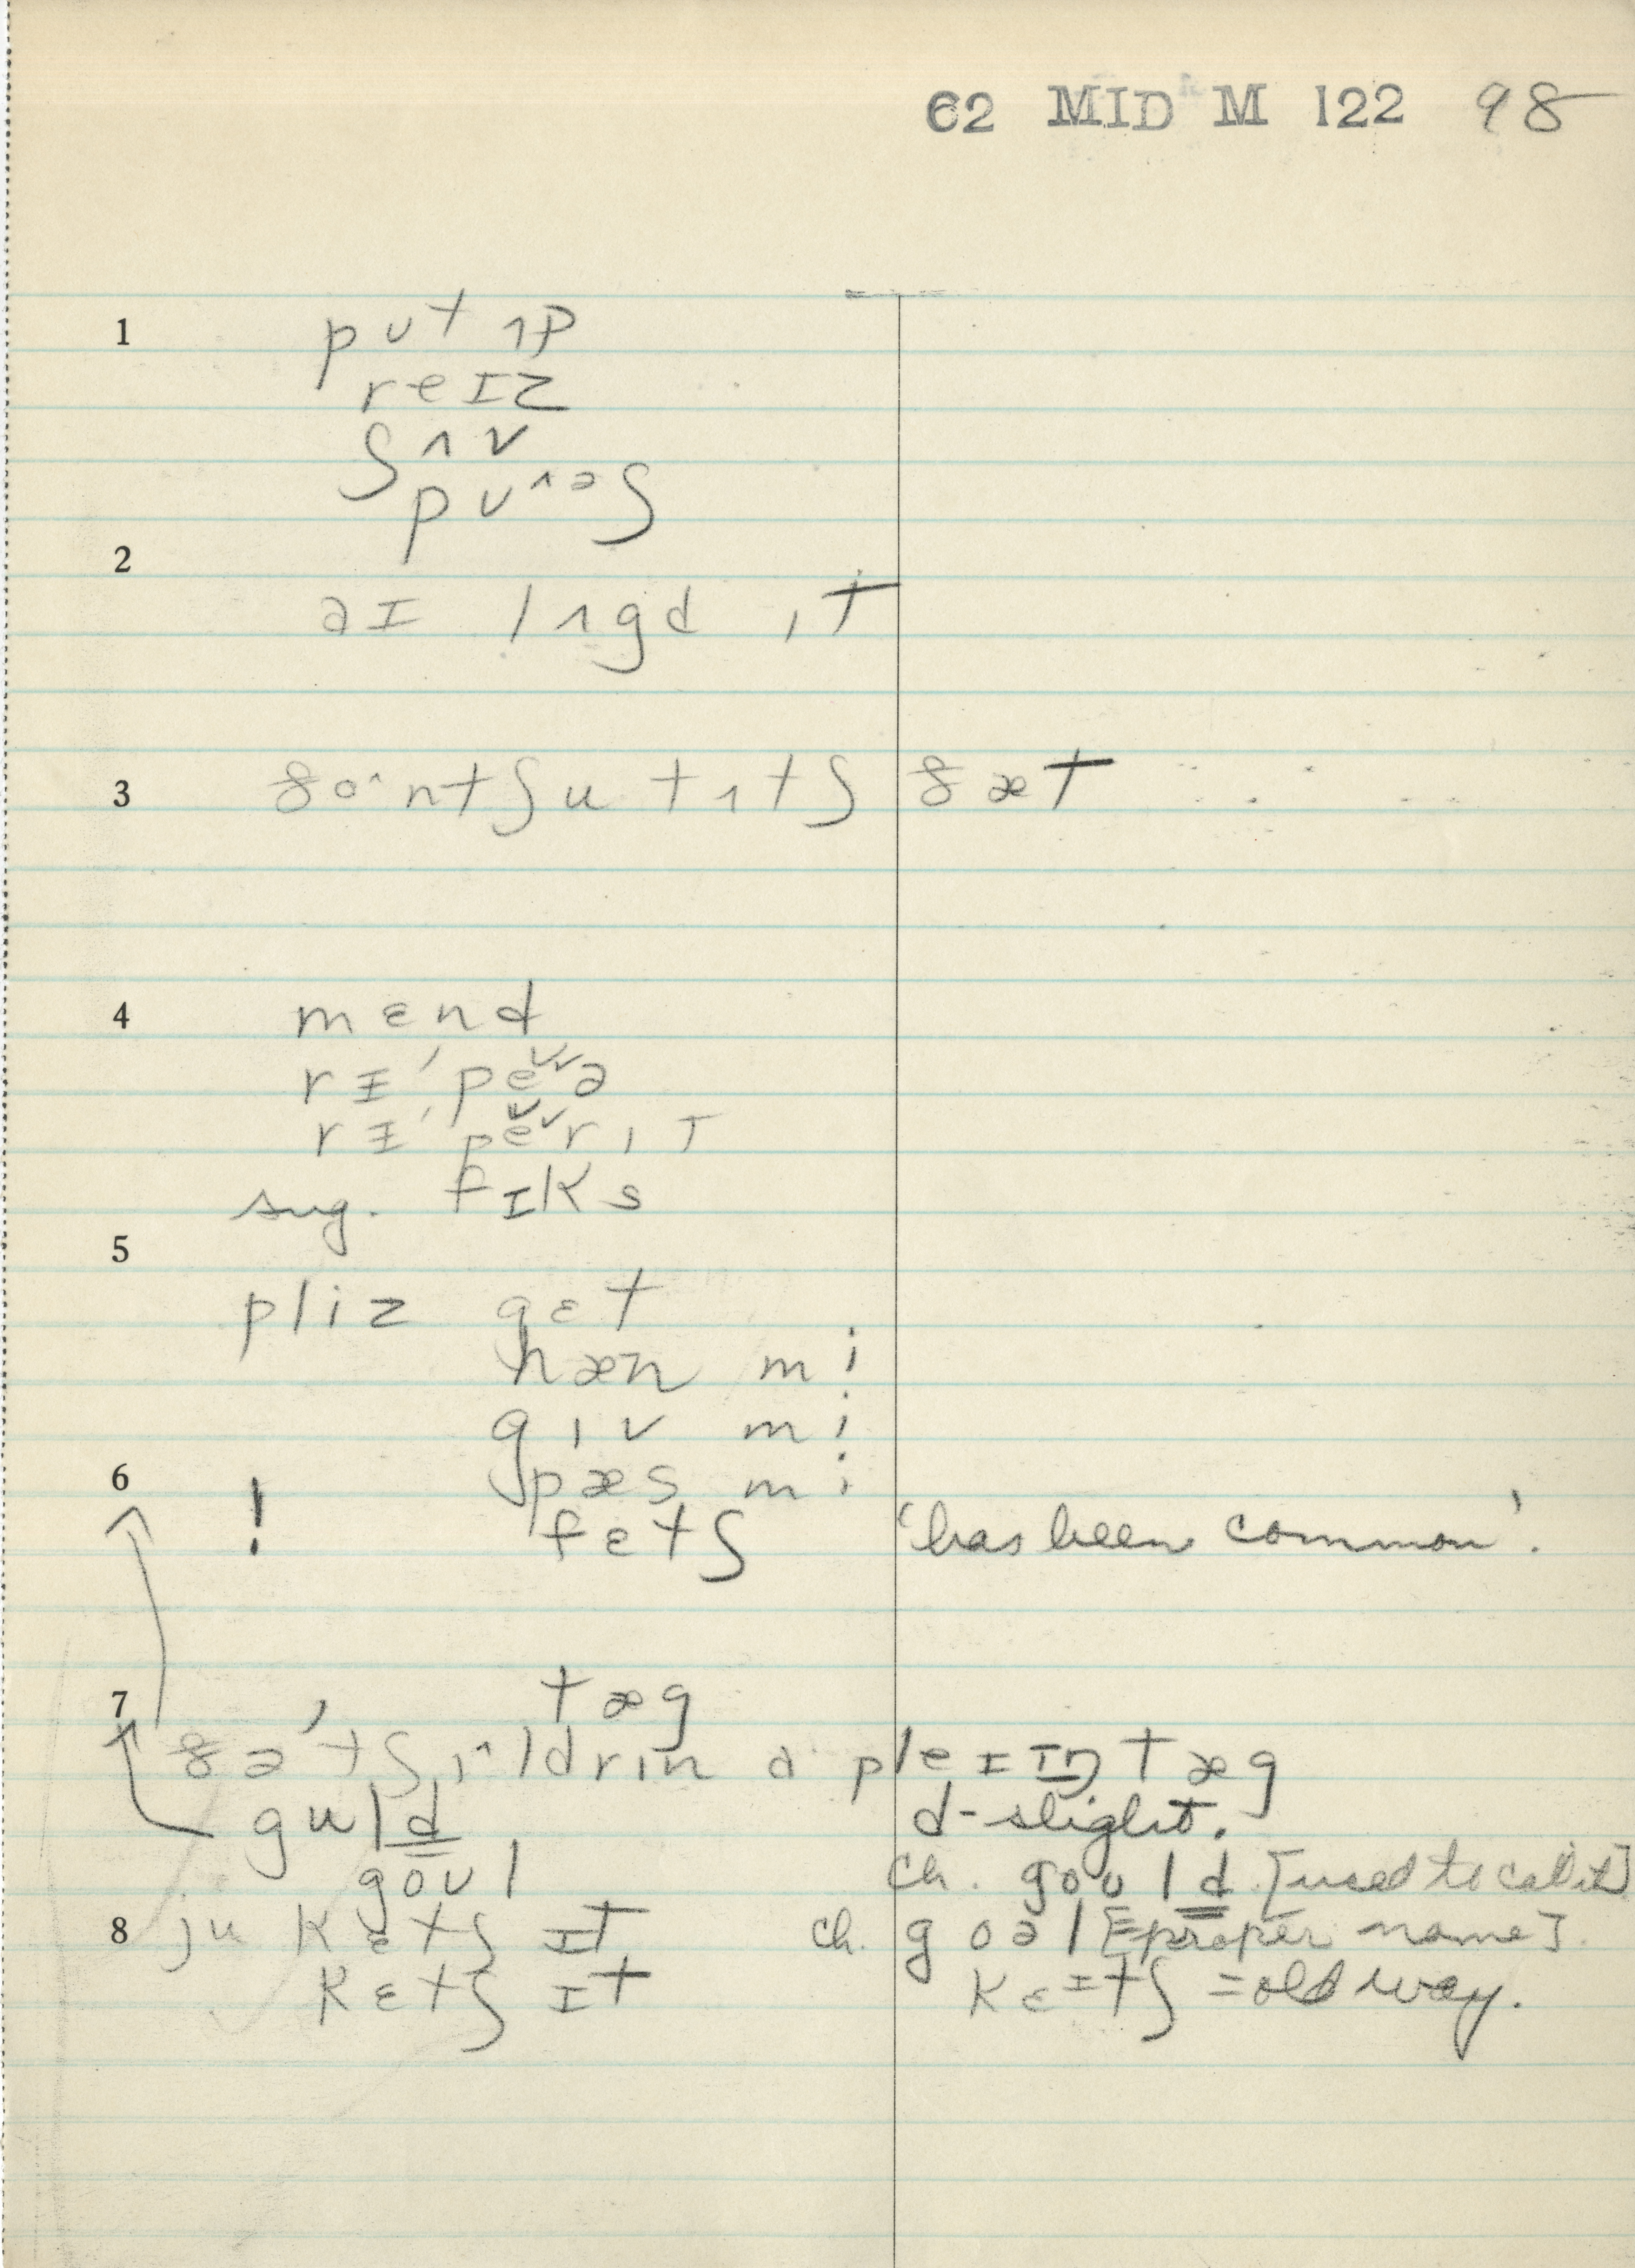 62 MID M 122 98
1 pʊt ʌp
reɪz
ʃʌv
pʊ^əʃ
2
aɪ lʌgd ɪt
3 ðo^ntʃu tʌtʃ ðæt
4 mɛnd
rɪ'pe˅˅ə
rɪ'pe˅˅rɪt
sug. fɪks
5
pliz gɛt
hæn mi
gɪv mi
6 pæs mi
! fɛtʃ 'has been common'.
7 tæg
ðə 'tʃɪ^ldrɪn ə pleɪɪŋ tæg
guld d-slight.
goʊl ch. goʊld [used to call it]
8 ju kɛtʃ ɪt ch. goəl [proper name].
kɛtʃ ɪt kɛɪtʃ = old way.